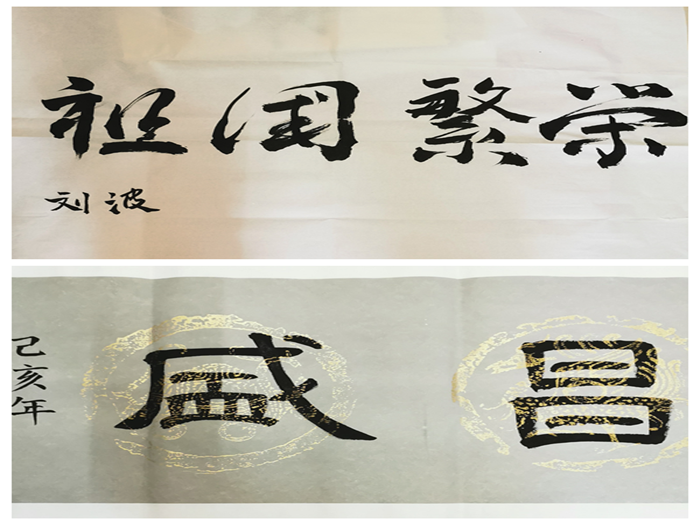 祖国繁荣
刘波
昌盛
己亥年